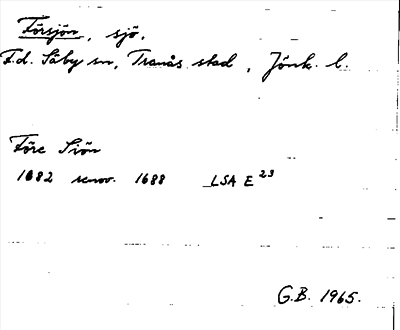 Försjön, sjö.
F.d. Säby sn, Tranås stad, Jönk. l.
Före Siön
1682 renov. 1688 LSA E 23
G.B. 1965.